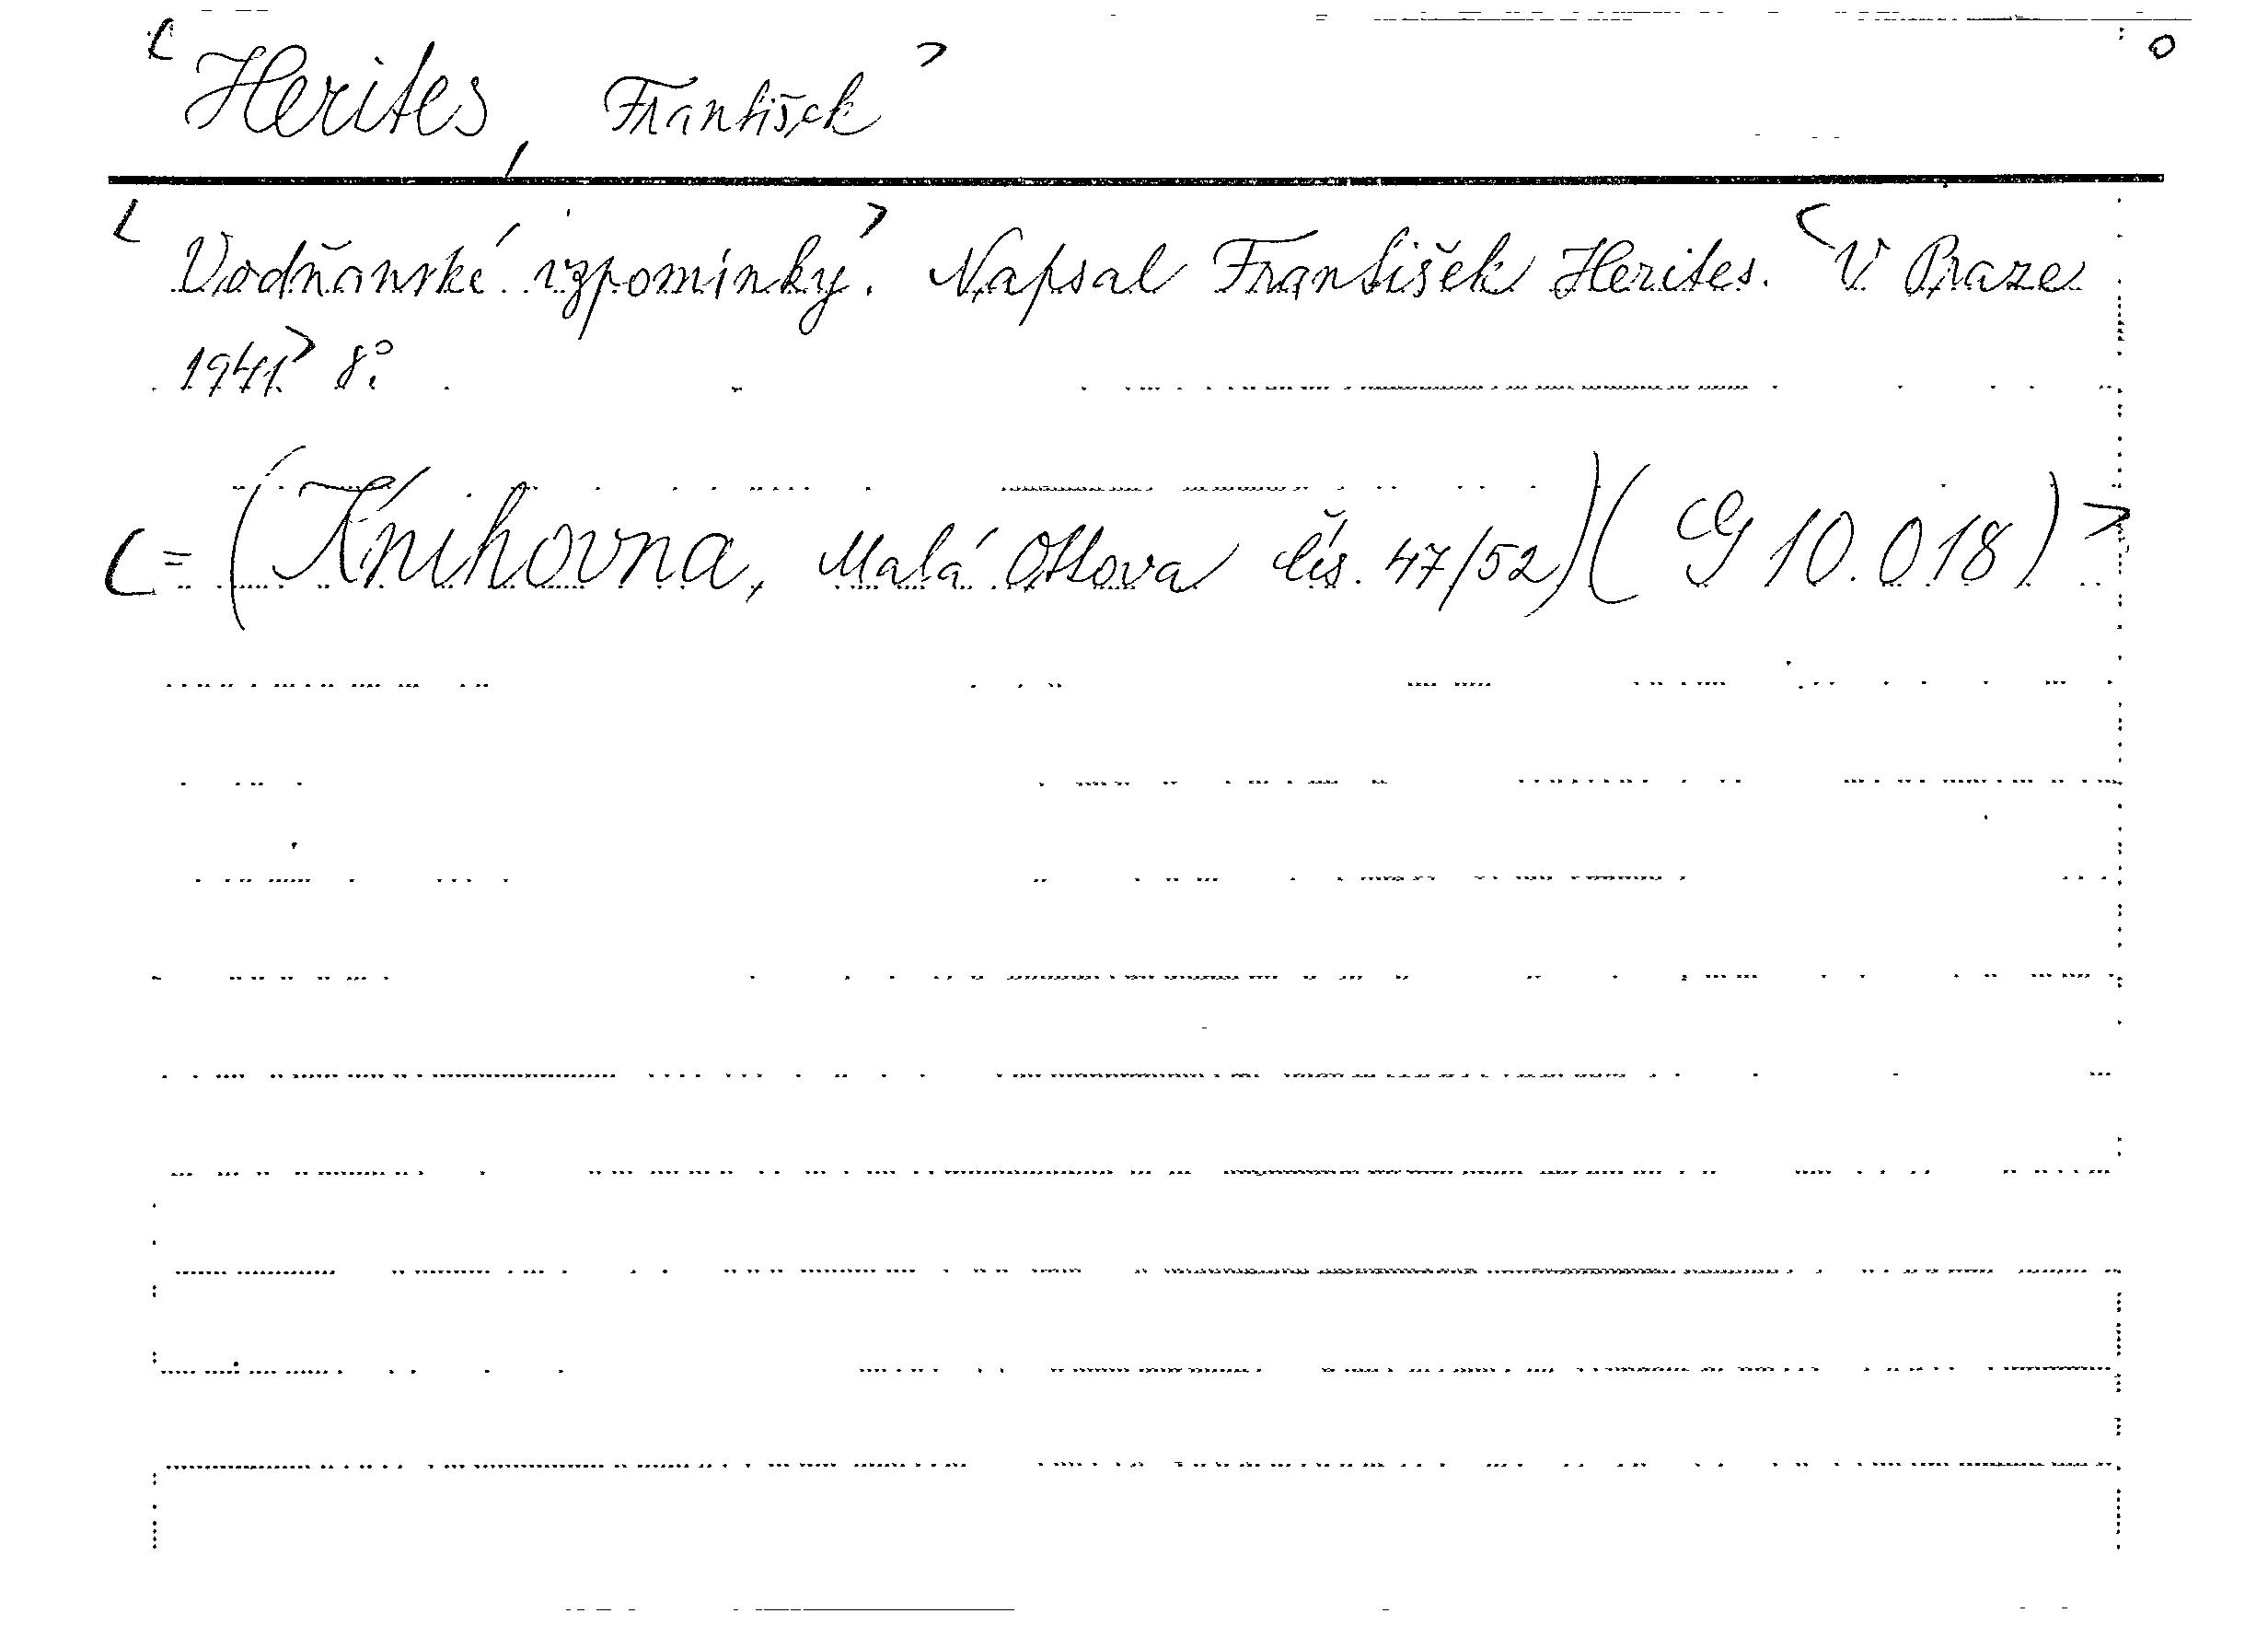 < Herites, František >
< Vodňanské vzpomínky. > Napsal František Herites. < V Praze
1941 > 8°.
< = (Knihovna, Malá Ottova čís. 47/52) ( G 10.018) >